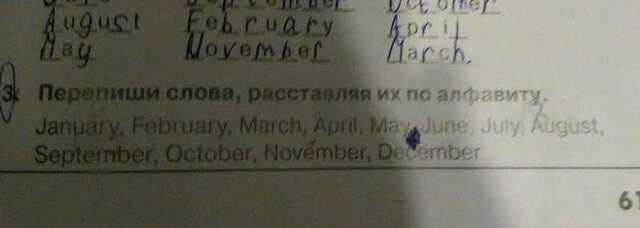 August February April
May November March.
3. Перепиши слова, расставляя их по алфавиту.
January, February, March, April, May, June, July, August,
September, October, November, December
61